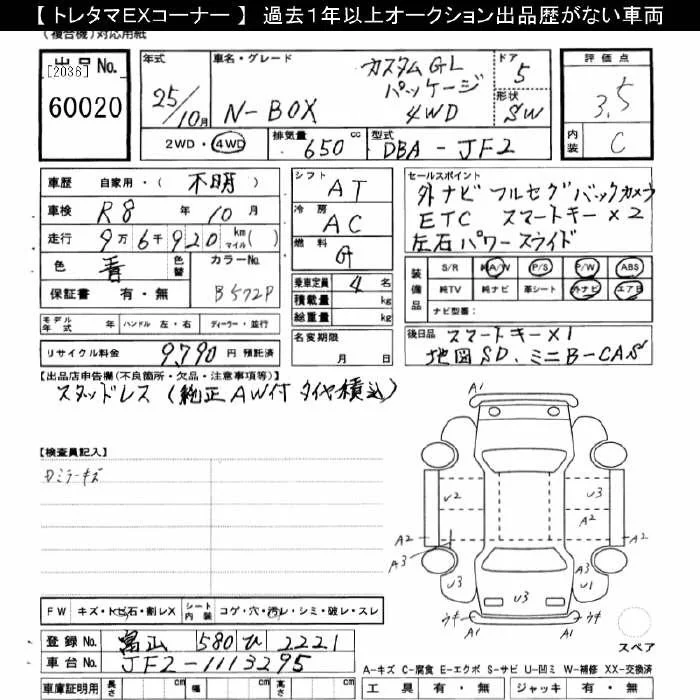 【 トレタマEXコーナー 】 過去1年以上オークション出品歴がない車両
(複合機)対応用紙
出品No.
[2036]
60020
年式 25/10月
車名・グレード N-BOX カスタムGLパッケージ 4WD
ドア 5
形状 SW
評価点 3.5
内装 C
2WD・4WD
排気量 650 cc
型式 DBA-JF2
車歴 自家用・( 不明 )
車検 R8 年 10 月
走行 9万6千920 km マイル( )
色 青 色替 カラーNo. B572P
保証書 有・無
シフト AT
冷房 AC
燃料 G
乗車定員 4 名
積載量 kg
総重量 kg
名変期限 月 日
セールスポイント
外ナビ フルセグ バックカメラ
ETC スマートキー×2
左右パワースライド
装備品
S/R A/W P/S P/W ABS
純TV 純ナビ 革シート 外ナビ エアB
ナビ型番:
モデル年式 年 ハンドル 左・右 ディーラー・並行
リサイクル料金 9,790 円 預託済
後日品 スマートキー×1
地図SD、ミニB-CAS
【出品店申告欄(不良箇所・欠品・注意事項等)】
スタッドレス (純正AW付タイヤ積込)
【検査員記入】
Dミラーキズ
A1
U2
U3
A2
A2
A2
A3
A3
U3
U3
U1
ウキ
ウキ
A1
A1
スペア
FW キズ・トビ石・割レX シート内装 コゲ・穴・汚レ・シミ・破レ・スレ
登録No. 富山 580 ひ 2221
車台No. JF2-1113295
A-キズ C-腐食 E-エクボ S-サビ U-凹ミ W-補修 XX-交換済
車庫証明用 長さ cm 幅 cm 高さ cm
工具 有・無 ジャッキ 有・無